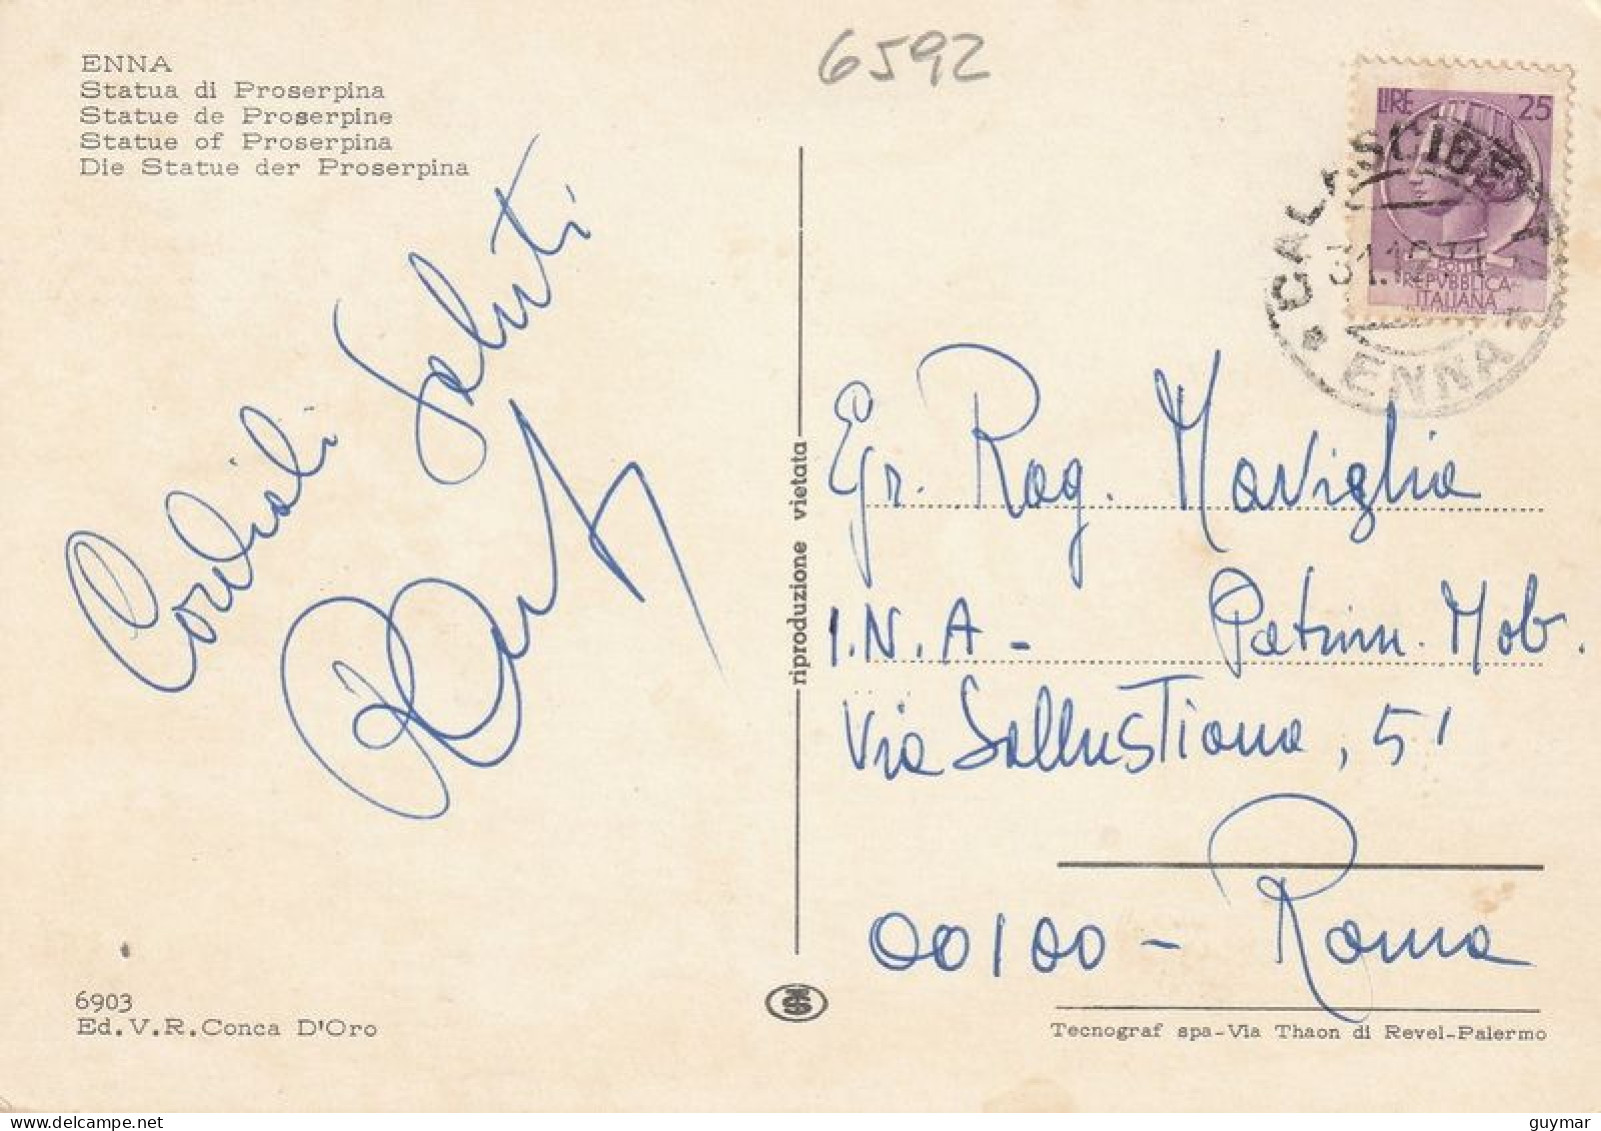 6592
ENNA
Statua di Proserpina
Statue de Proserpine
Statue of Proserpina
Die Statue der Proserpina
LIRE 25
POSTE
REPVBBLICA
ITALIANA
CALASCIBETTA
ENNA
Cordiali Saluti
riproduzione vietata
Egr. Rag. Maviglia
I.N.A - Patrim. Mob.
Via Sallustiana, 51
00100 - Roma
6903
Ed.V.R.Conca D'Oro
Tecnograf spa-Via Thaon di Revel-Palermo
guymar